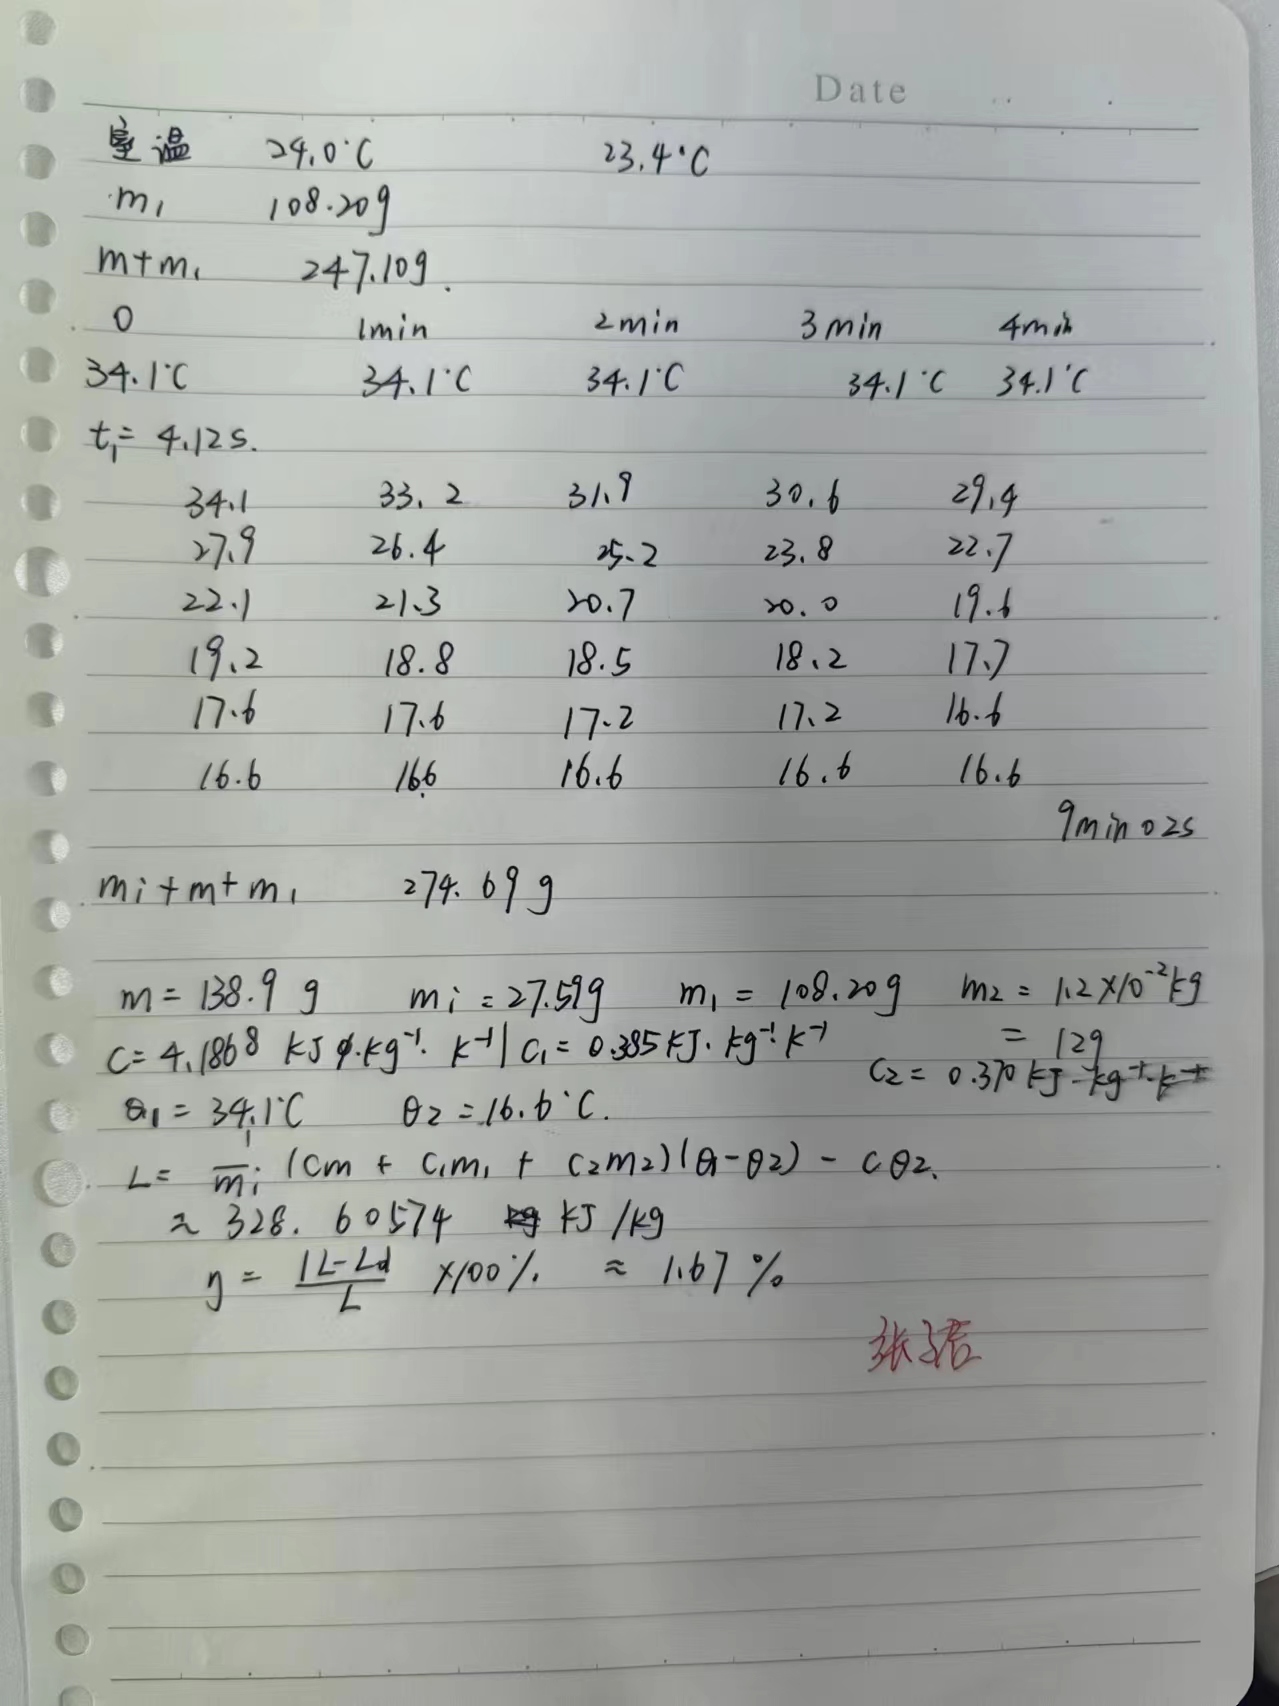 Date
室温 24.0°C 23.4°C
m₁ 108.20g
m+m₁ 247.10g.
0 1min 2min 3min 4min
34.1°C 34.1°C 34.1°C 34.1°C 34.1°C
t₁= 4.12s.
34.1 33.2 31.9 30.6 29.4
27.9 26.4 25.2 23.8 22.7
22.1 21.3 20.7 20.0 19.6
19.2 18.8 18.5 18.2 17.7
17.6 17.6 17.2 17.2 16.6
16.6 16.6 16.6 16.6 16.6
9min02s
mi+m+m₁ 274.69g
m=138.9g mi=27.59g m₁=108.20g m₂=1.2×10⁻²kg
=12g
C=4.1868 kJ·kg⁻¹·k⁻¹ | C₁=0.385kJ·kg⁻¹·k⁻¹
C₂=0.370kJ·kg⁻¹·k⁻¹
θ₁=34.1°C θ₂=16.6°C.
L= 1/mi (cm + c₁m₁ + c₂m₂)(θ₁-θ₂) - cθ₂.
≈ 328.60574 kJ/kg
η= |L-Ld|/L ×100% ≈ 1.67%